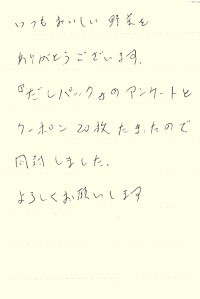 いつもおいしい野菜を
ありがとうございます。
『だしパック』のアンケートと
クーポン20枚たまったので
同封しました。
よろしくお願いします